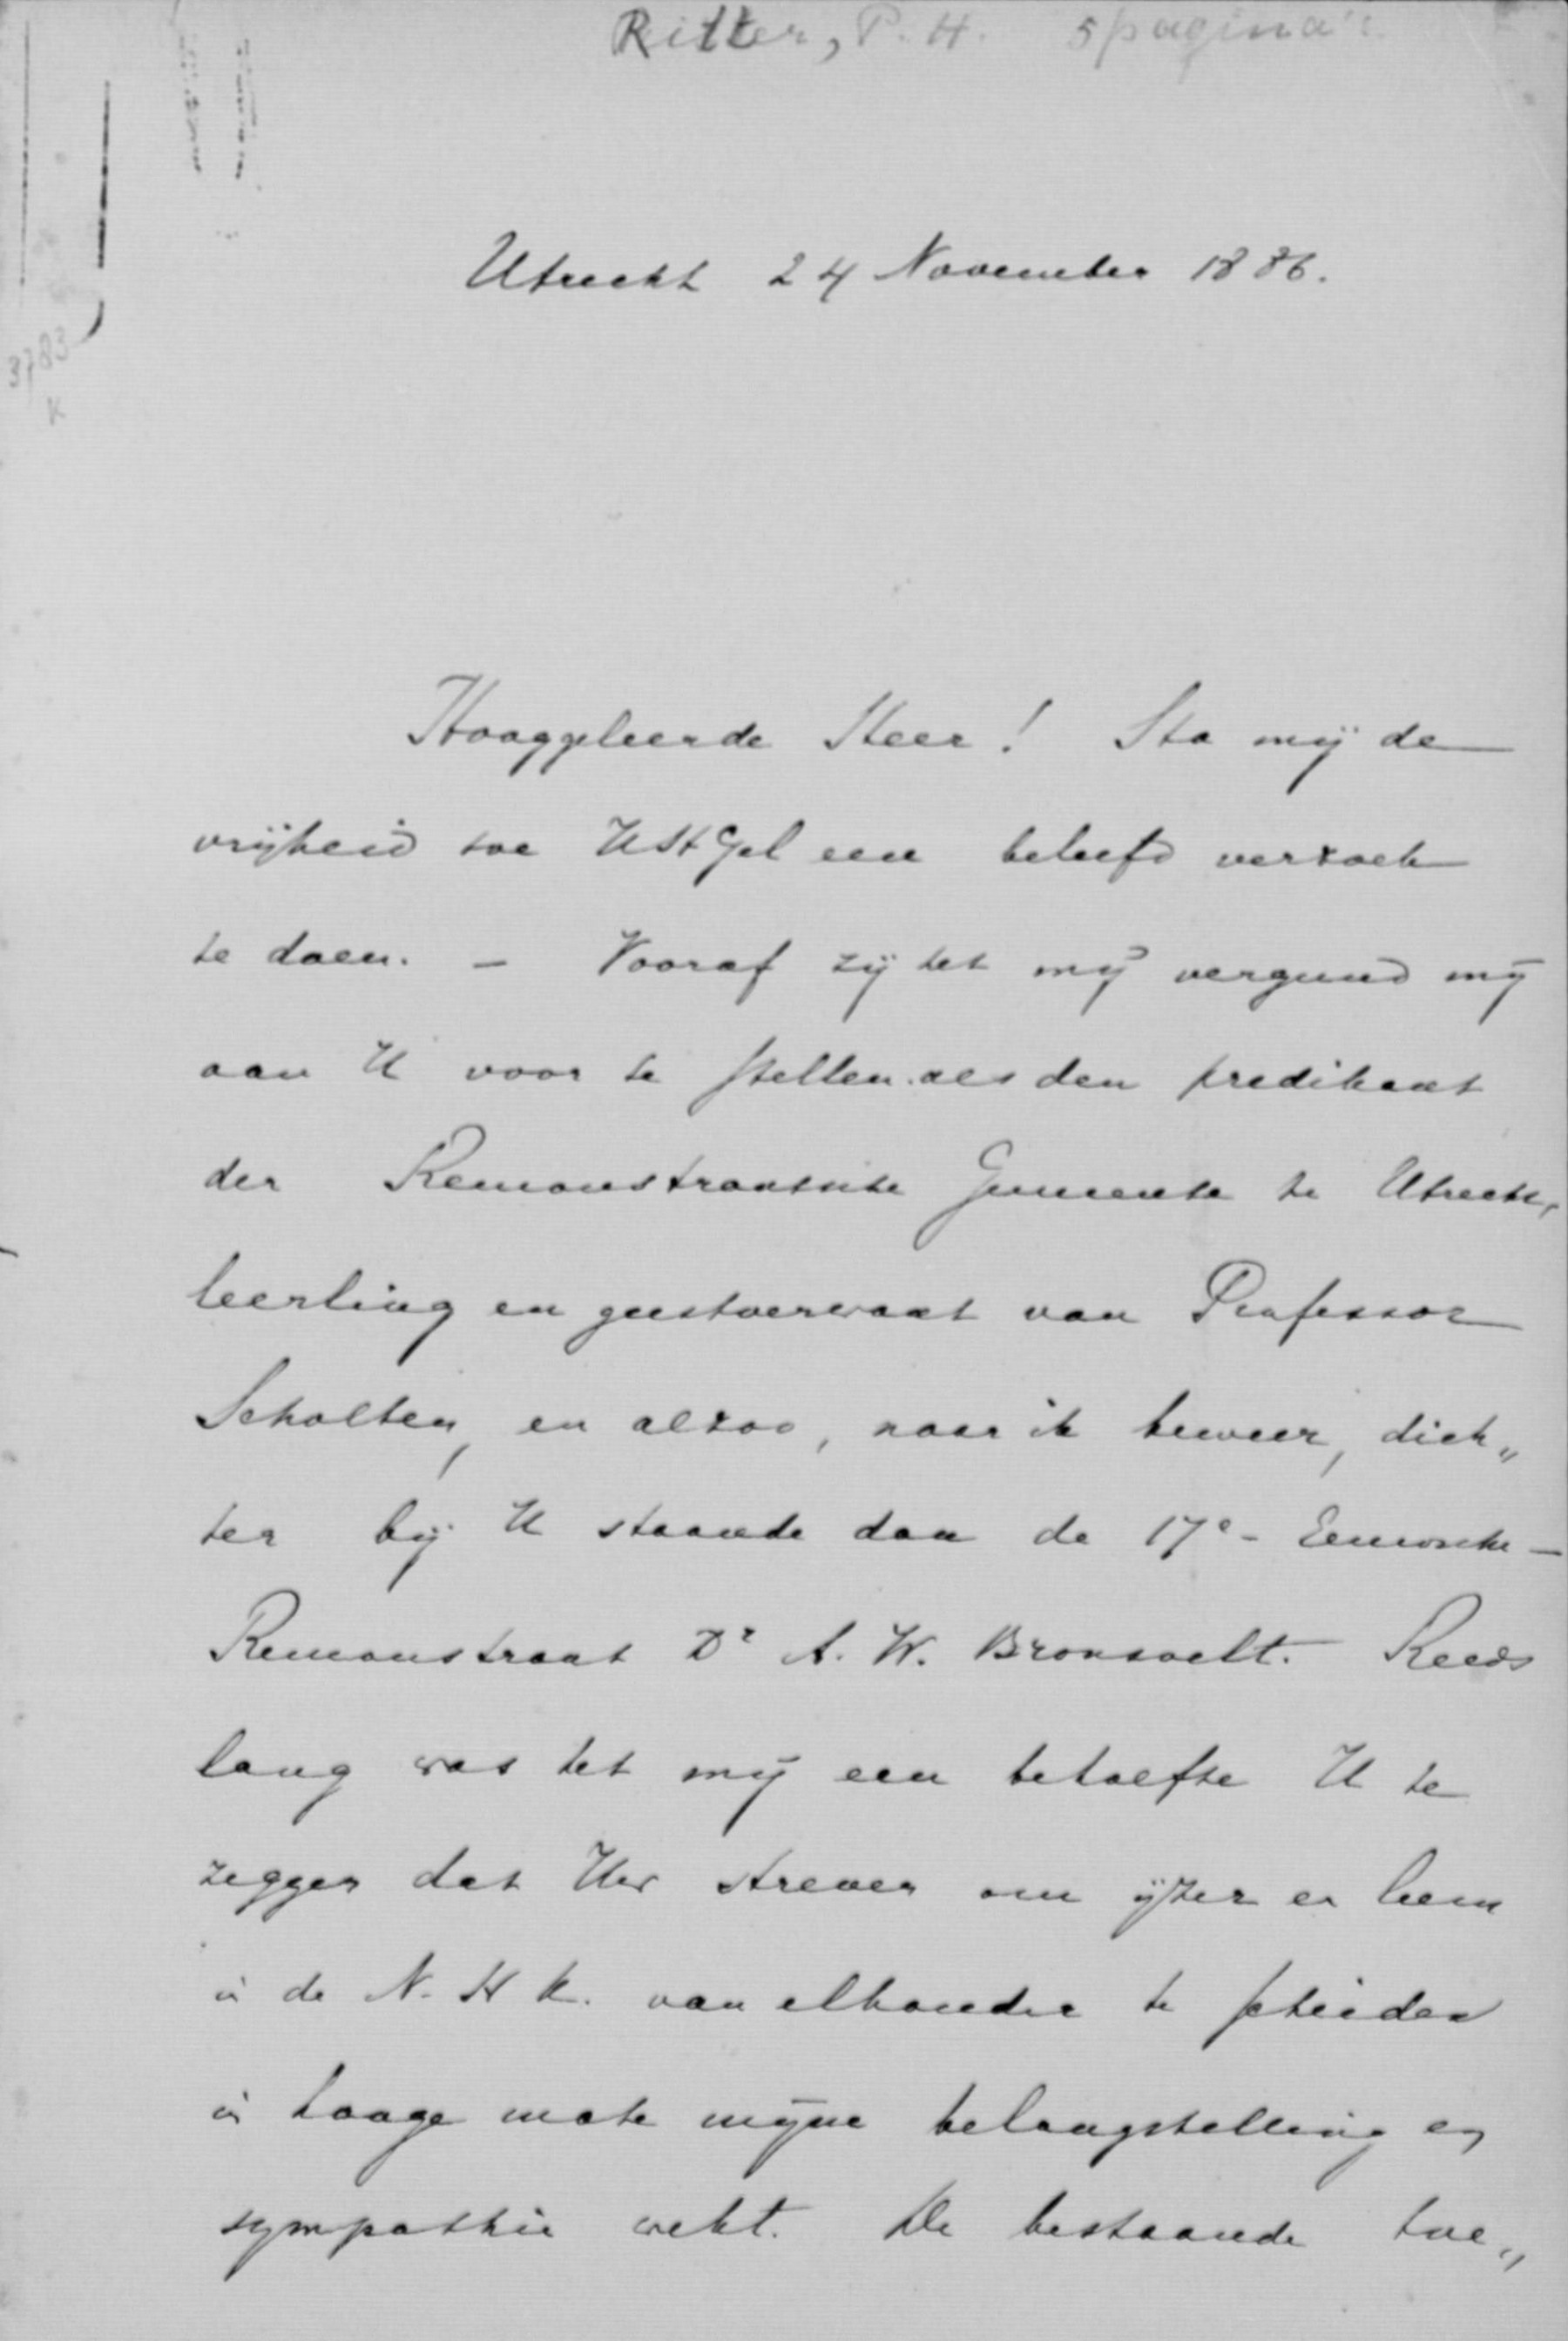 Ritter, P. H. 5 pagina's
3783
K
Utrecht 24 November 1886.
Hooggeleerde Heer! Sta mij de
vrijheid toe UHGel een beleefd verzoek
te doen. – Vooraf zij het mij vergund mij
aan U voor te stellen als den predikant
der Remonstrantsche Gemeente te Utrecht,
leerling en geestverwant van Professor
Scholten, en alzoo, naar ik beweer, dich„
ter bij U staande dan de 17e-Eeuwsche –
Remonstrant Dr A. W. Bronsvelt. Reeds
lang was het mij een behoefte U te
zeggen dat Uw streven om ijzer en leem
in de N. H K. van elkander te scheiden
in hooge mate mijne belangstelling en
sympathie wekt. De bestaande toe„